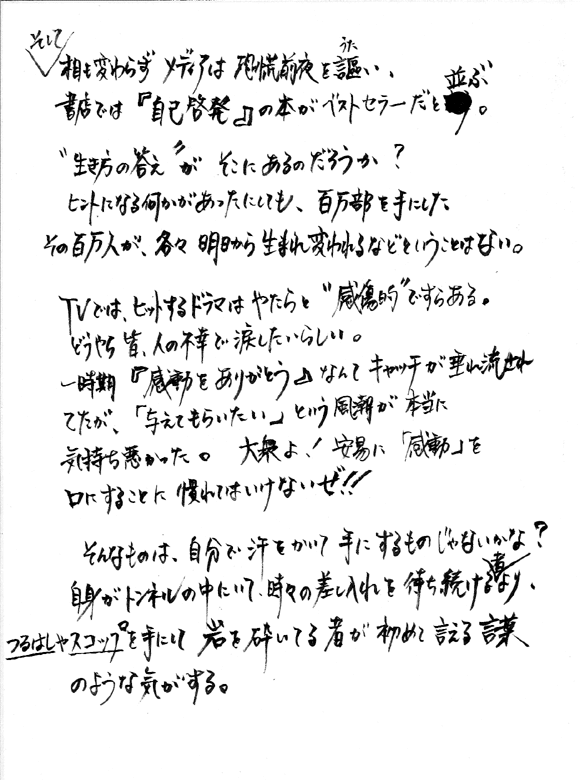 そして
相も変わらず メディアは 恐慌前夜を謳い、
うた
書店では『自己啓発』の本がベストセラーだと並ぶ。
"生き方の答え"が そこにあるのだろうか？
ヒントになる何かがあったにしても、百万部を手にした
その百万人が、各々 明日から生まれ変われるなどということはない。
TVでは、ヒットするドラマは やたらと "感傷的"ですらある。
どうやら皆、人の不幸で涙したいらしい。
一時期『感動をありがとう』なんて キャッチが垂れ流され
てたが、「与えてもらいたい」という風潮が 本当に
気持ち悪かった。 大衆よ！ 安易に「感動」を
口にすることに 慣れてはいけないぜ!!
そんなものは、自分で汗をかいて 手にするものじゃないかな？
自身がトンネルの中にいて、時々の差し入れを待ち続ける者より、
つるはしやスコップを手にして 岩を砕いてる者が 初めて言える言葉
のような気がする。